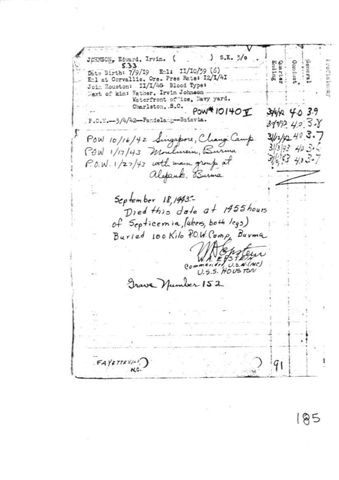 JOHNSON, Edward. Irvin. ( ) S.K. 3/c
533
Date Birth: 7/9/19 Enl: 11/10/39 (6)
Enl at Corvallis. Ore. Pres Rate: 12/1/41
Join Houston: 11/1/40 Blood Type:
Next of kin: Father, Irvin Johnson
Waterfront office, Navy yard.
Charleston. S.C.
POW# 10140 V
P.O.W.--3/4/42--Pandelang--Batavia.
POW 10/16/42 Singapore, Changi Camp
POW 1/17/43 Moulmein, Burma
P.O.W. 1/27/43 with main group at
Alepauk, Burma
September 18, 1943:-
Died this date at 1455 hours
of Septicemia, (ulcers, both legs)
Buried 100 Kilo P.O.W. Camp, Burma
W.A. EPSTEIN
Commander, U.S.N. (MC)
U.S.S. HOUSTON
Grave Number 152
FAYETTEVILLE
N.C.
Conduct
General
4.0 3.9
4.0 3.8
4.0 3.7
4.0 3.7
4.0 3.7
91
185